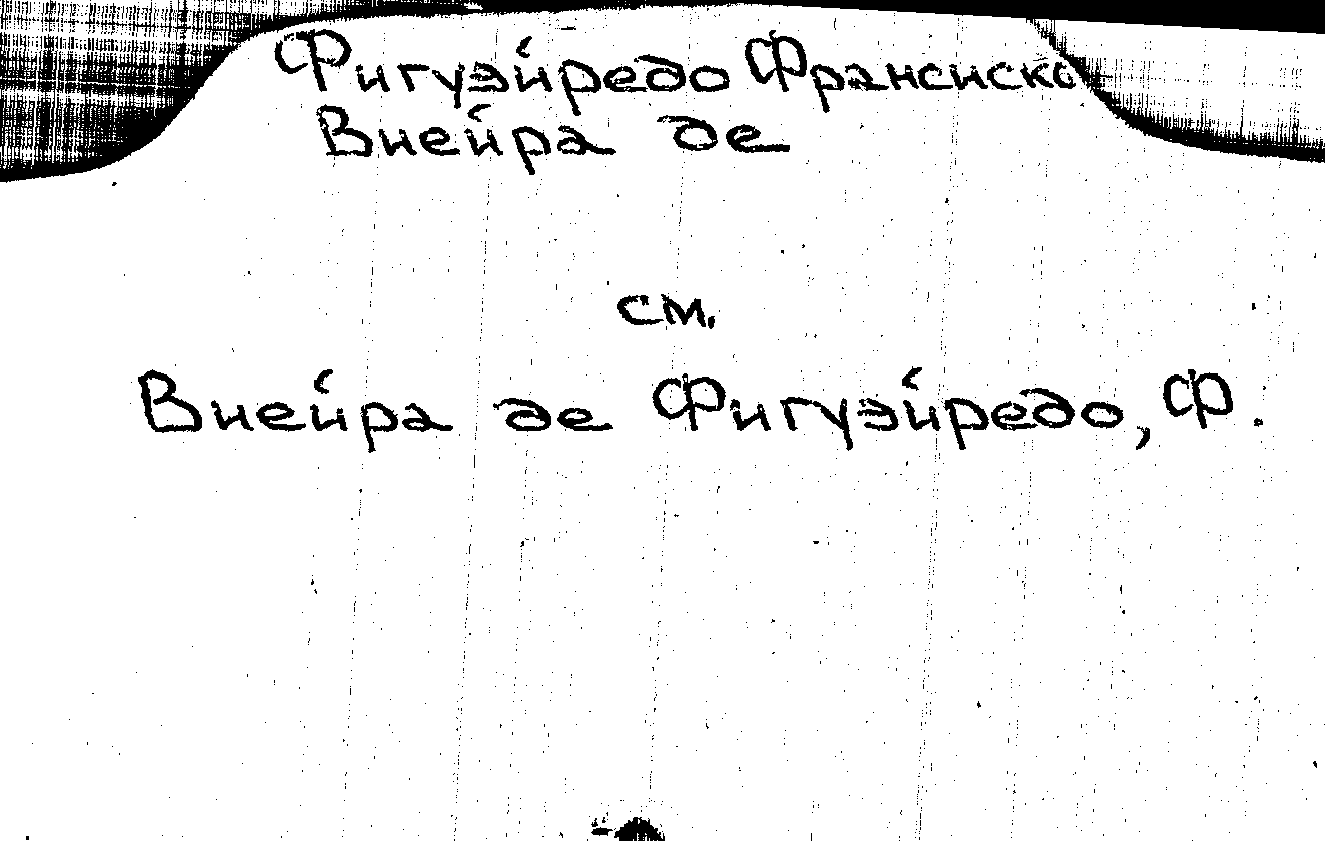 Фигуэйредо Франсиско
Виейра де
см.
Виейра де Фигуэйредо, Ф.